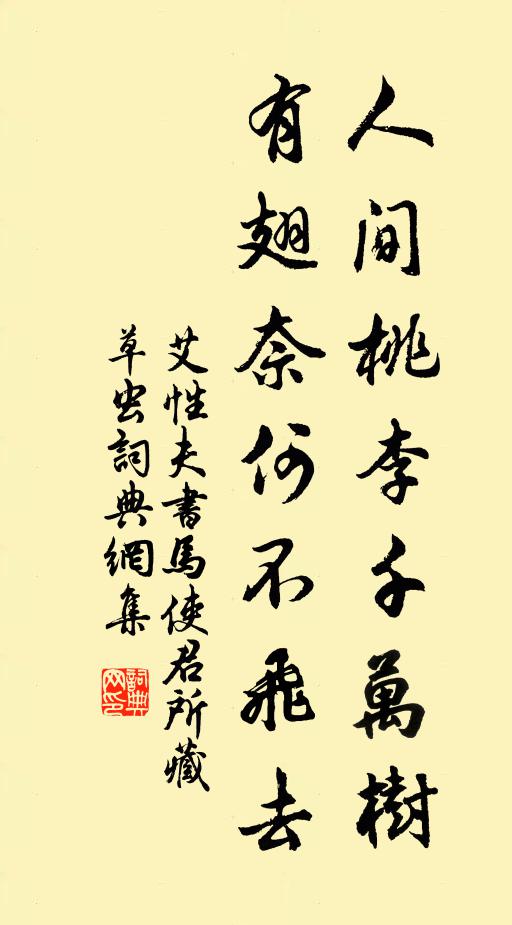 人間桃李千萬樹
有翅奈何不飛去
艾性夫書馬使君所藏
草虫詞典網集
詞典
网印